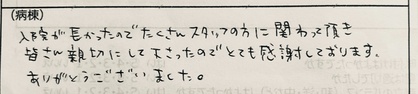 (病棟)
入院が長かったのでたくさんスタッフの方に関わって頂き
皆さん親切にして下さったのでとても感謝しております。
ありがとうございました。